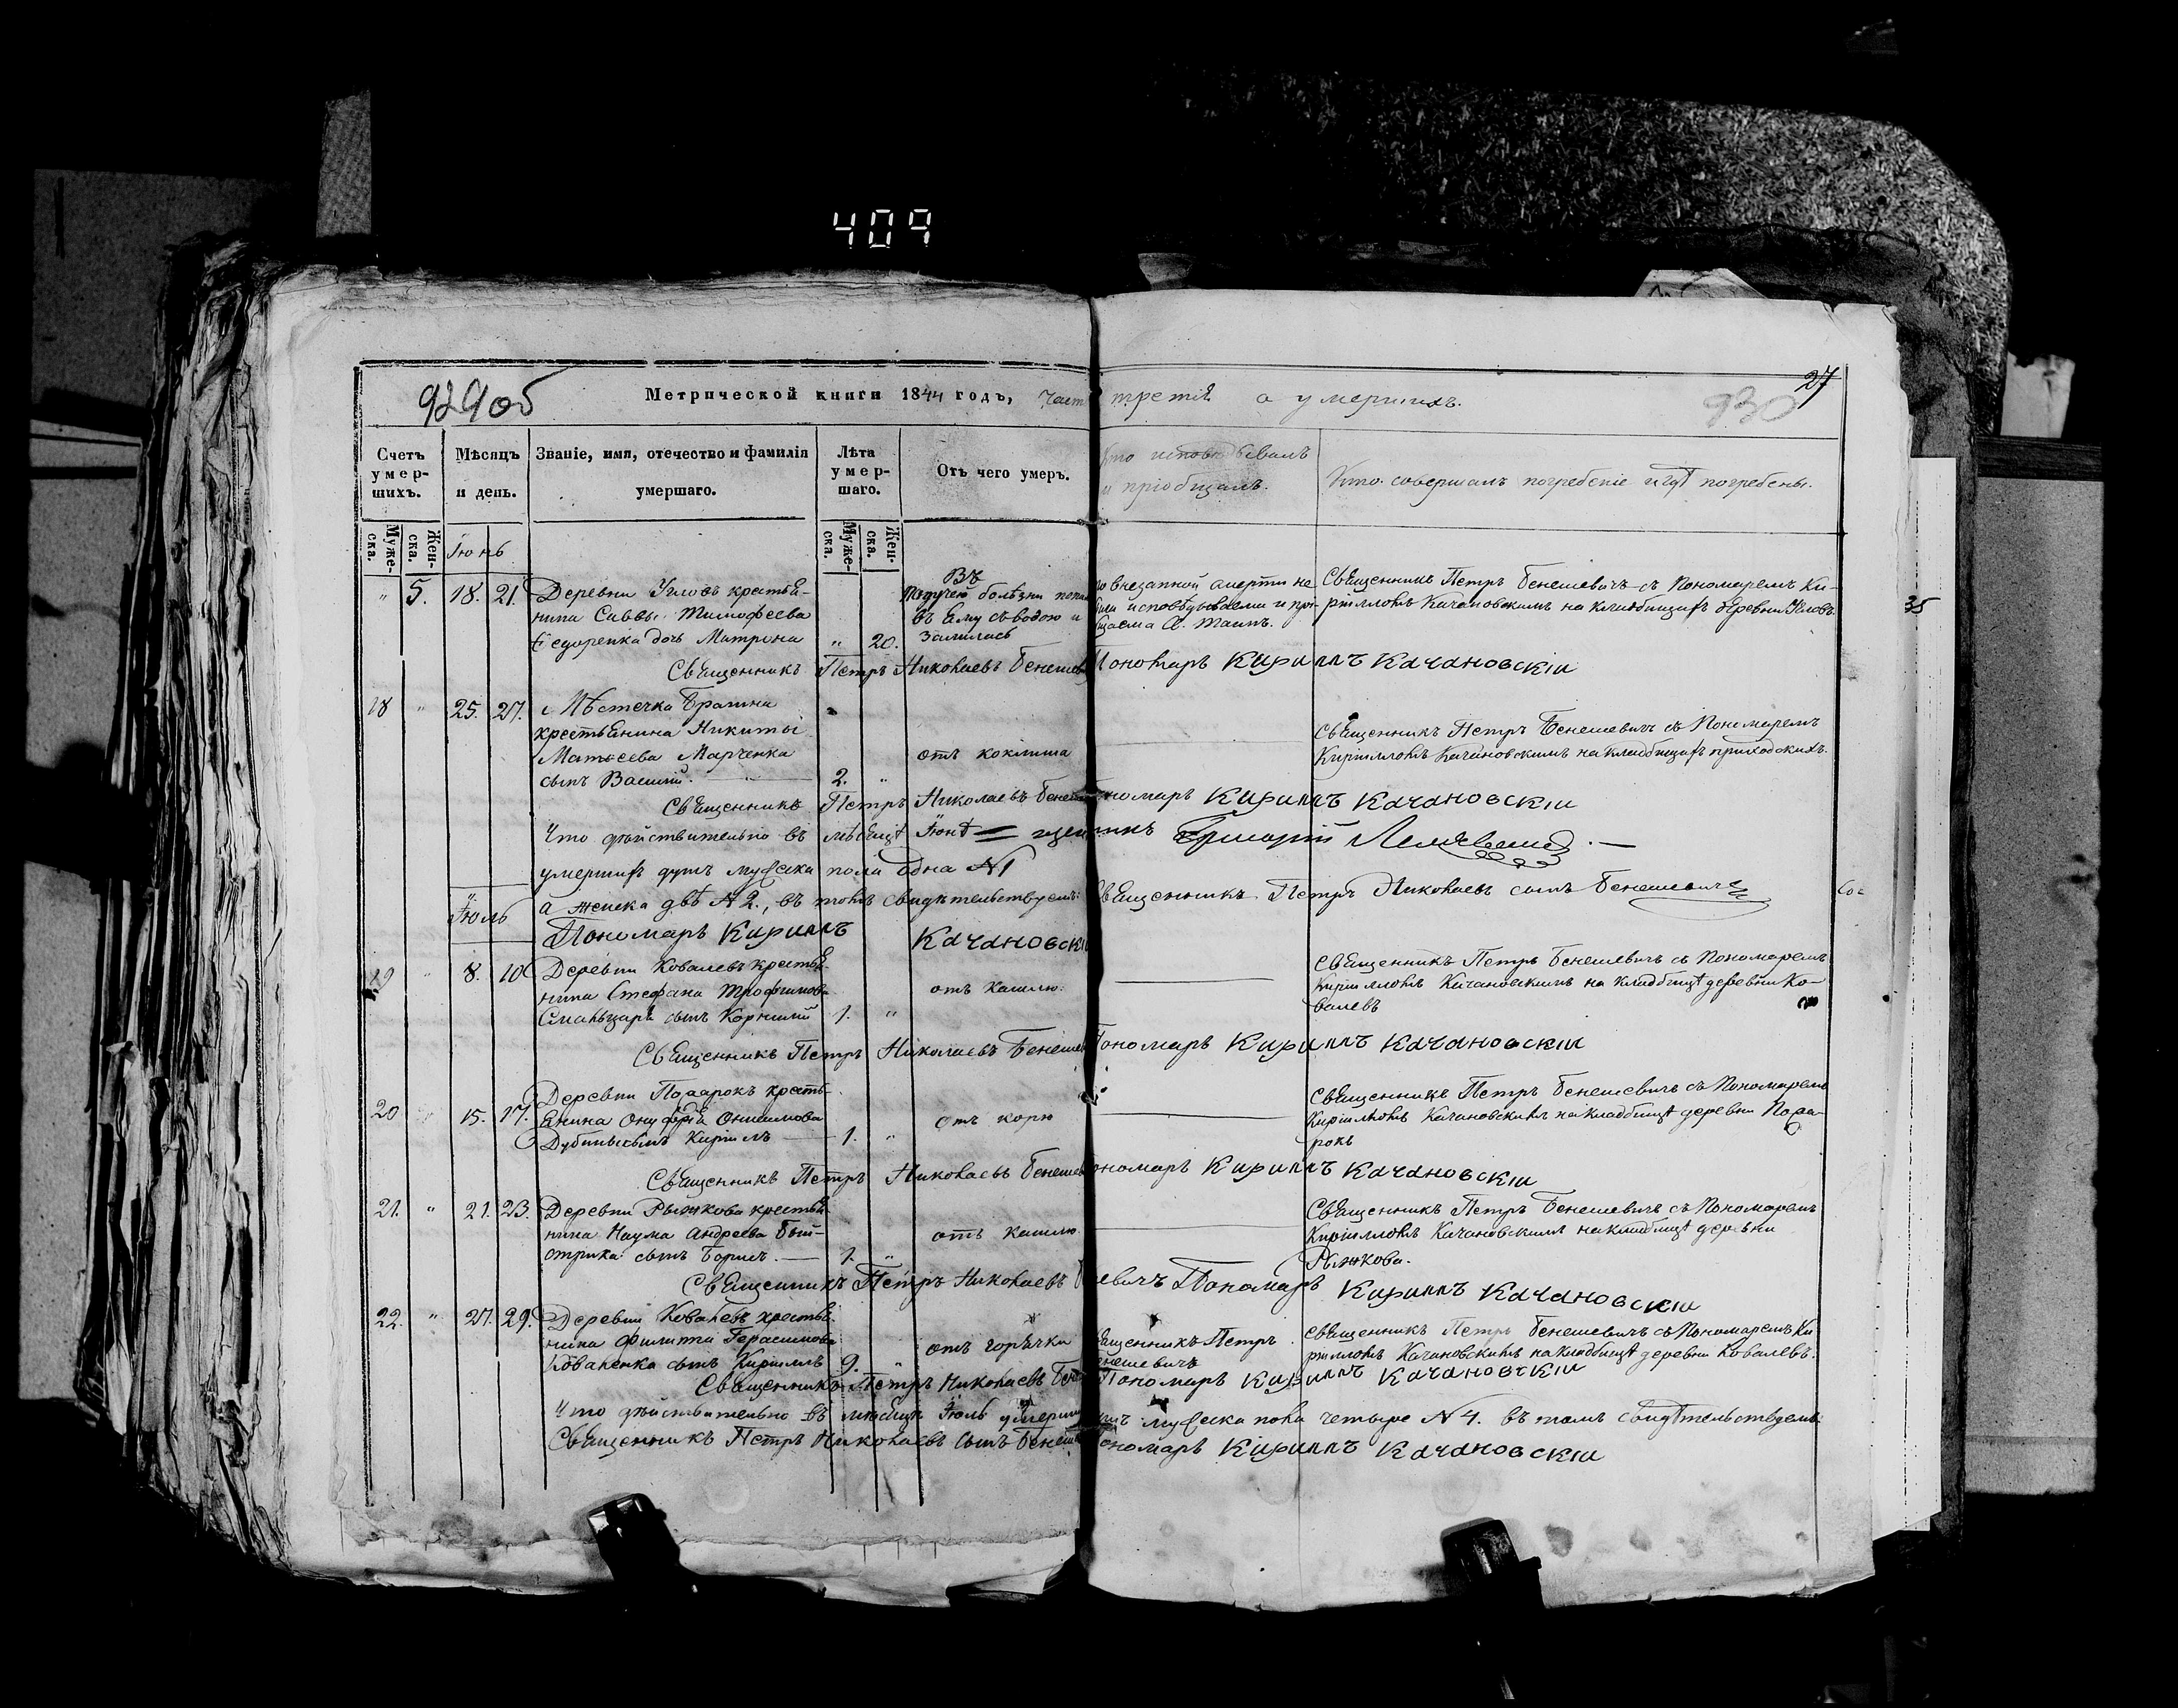 409
929об
Метрической книги 1844 годъ, Часть третія о умершихъ.
27
930
Счетъ умершихъ.
Мѣсяцъ и день.
Званіе, имя, отечество и фамилія умершаго.
Лѣта умершаго.
Отъ чего умеръ.
Кто исповѣдывалъ и пріобщалъ.
Кто совершалъ погребеніе и гдѣ погребены.
Мужеска. Женска.
Мужеска. Женска.
Іюнь
" 5. 18. 21. Деревни Угловъ крестья-
нина Саввы Тимофеева
Федоренка дочь Матрона " 20.
Въ
падучей болѣзни
въ яму съ водою и
залилась
по внезапной смерти не
щаема С. Таинъ.
Священникъ Петръ Бенешевичъ съ Пономаремъ Ки-
рилломъ Качановскимъ на кладбищахъ деревни Угловъ
35
Священникъ Петръ Николаевъ Бенешев Пономаръ Кириллъ Качановскій
18 " 25. 27. Мѣстечка Брагина
крестьянина Никиты
Матвеева Марченка
сынъ Василій. 2. "
отъ коклюша
Священникъ Петръ Бенешевичъ съ Пономаремъ
Кирилломъ Качановскимъ на кладбищахъ приходскихъ.
Священникъ Петръ Николаевъ Бенеш ономаръ Кириллъ Качановскій
Что дѣйствительно въ мѣсяцѣ Іюнѣ
умершихъ душъ мужеска пола одна №1
а женска двѣ №2, въ томъ свидѣтельствуемъ: Священникъ Петръ Николаевъ сынъ Бенешевичъ
Іюль
Пономаръ Кириллъ Качановскій
19 " 8. 10 Деревни Ковалевъ крестья-
нина Стефана Трофимова
сынъ Корнилій 1. "
отъ кашлю.
Священникъ Петръ Бенешевичъ съ Пономаремъ
Кирилломъ Качановскимъ на кладбищѣ деревни Ко-
валевъ
Священникъ Петръ Николаевъ Бенешев Пономаръ Кириллъ Качановскій
20 15. 17. Деревни крестьянина Онуфрія Онисимова
сынъ Кириллъ 1. "
отъ кори
Священникъ Петръ Бенешевичъ съ Пономаремъ
Кирилломъ Качановскимъ на кладбищѣ деревни
Священникъ Петръ Николаевъ Бенешев ономаръ Кириллъ Качановскій
21. " 21. 23. Деревни Рыжкова крестья-
нина Наума Андреева Быт-
стрика сынъ Борисъ. 1. "
отъ кашлю
Священникъ Петръ Бенешевичъ съ Пономаремъ
Кирилломъ Качановскимъ на кладбищѣ деревни
Рыжкова.
Священникъ Петръ Николаевъ Б евичъ Пономаръ Кириллъ Качановскій
22. " 27. 29. Деревни Ковалевъ крестья-
нина Филиппа Герасимова
Коваленка сынъ Кириллъ 9. "
отъ горячки
ященникъ Петръ
нешевичъ
Священникъ Петръ Бенешевичъ съ Пономаремъ Ки
рилломъ Качановскимъ на кладбищѣ деревни Ковалевъ.
Священникъ Петръ Николаевъ Бен Пономаръ Кириллъ Качановскій
Что дѣйствительно въ мѣсяцѣ Іюль умерши душъ мужеска пола четыре №4. въ томъ свидѣтельствуемъ:
Священникъ Петръ Николаевъ сынъ Бенеш ономаръ Кириллъ Качановскій